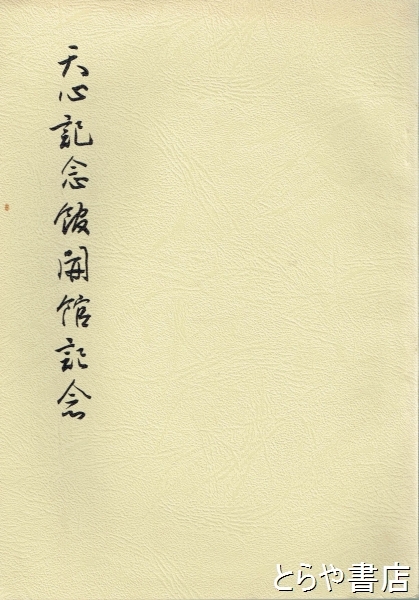 天心記念館開館記念
とらや書店